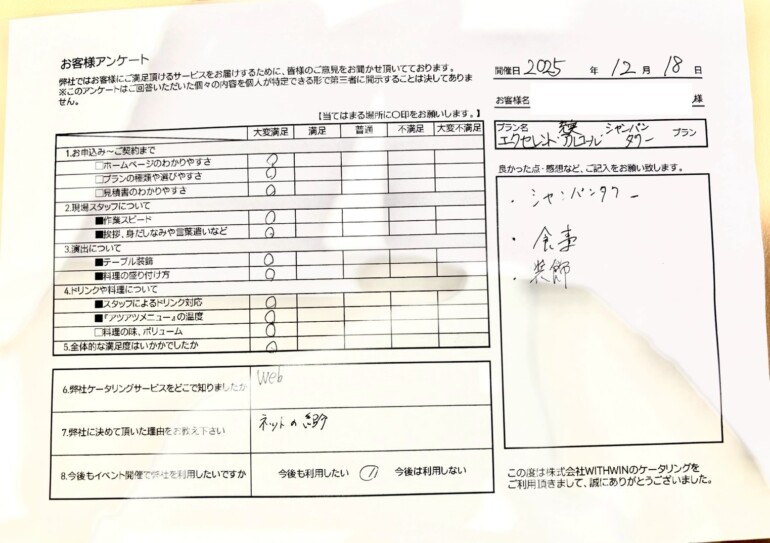 お客様アンケート
弊社ではお客様にご満足頂けるサービスをお届けするために、皆様のご意見をお聞かせ頂いております。
※このアンケートはご回答いただいた個々の内容を個人が特定できる形で第三者に開示することは決してありま
せん。
開催日 2025 年 12 月 18 日
お客様名 様
【当てはまる場所に〇印をお願いします。】
プラン名 シャンパン
エクセレント アルコール タワー プラン
大変満足 満足 普通 不満足 大変不満足
1.お申込み～ご契約まで
□ホームページのわかりやすさ
□プランの種類や選びやすさ
□見積書のわかりやすさ
2.現場スタッフについて
■作業スピード
■挨拶、身だしなみや言葉遣いなど
3.演出について
■テーブル装飾
■料理の盛り付け方
4.ドリンクや料理について
■スタッフによるドリンク対応
■『アツアツメニュー』の温度
□料理の味、ボリューム
5.全体的な満足度はいかがでしたか
良かった点・感想など、ご記入をお願い致します。
・シャンパンタワー
・食事
・装飾
6.弊社ケータリングサービスをどこで知りましたか
Web
7.弊社に決めて頂いた理由をお教え下さい
ネットの
8.今後もイベント開催で弊社を利用したいですか
今後も利用したい 今後は利用しない
この度は株式会社WITHWINのケータリングを
ご利用頂きまして、誠にありがとうございました。